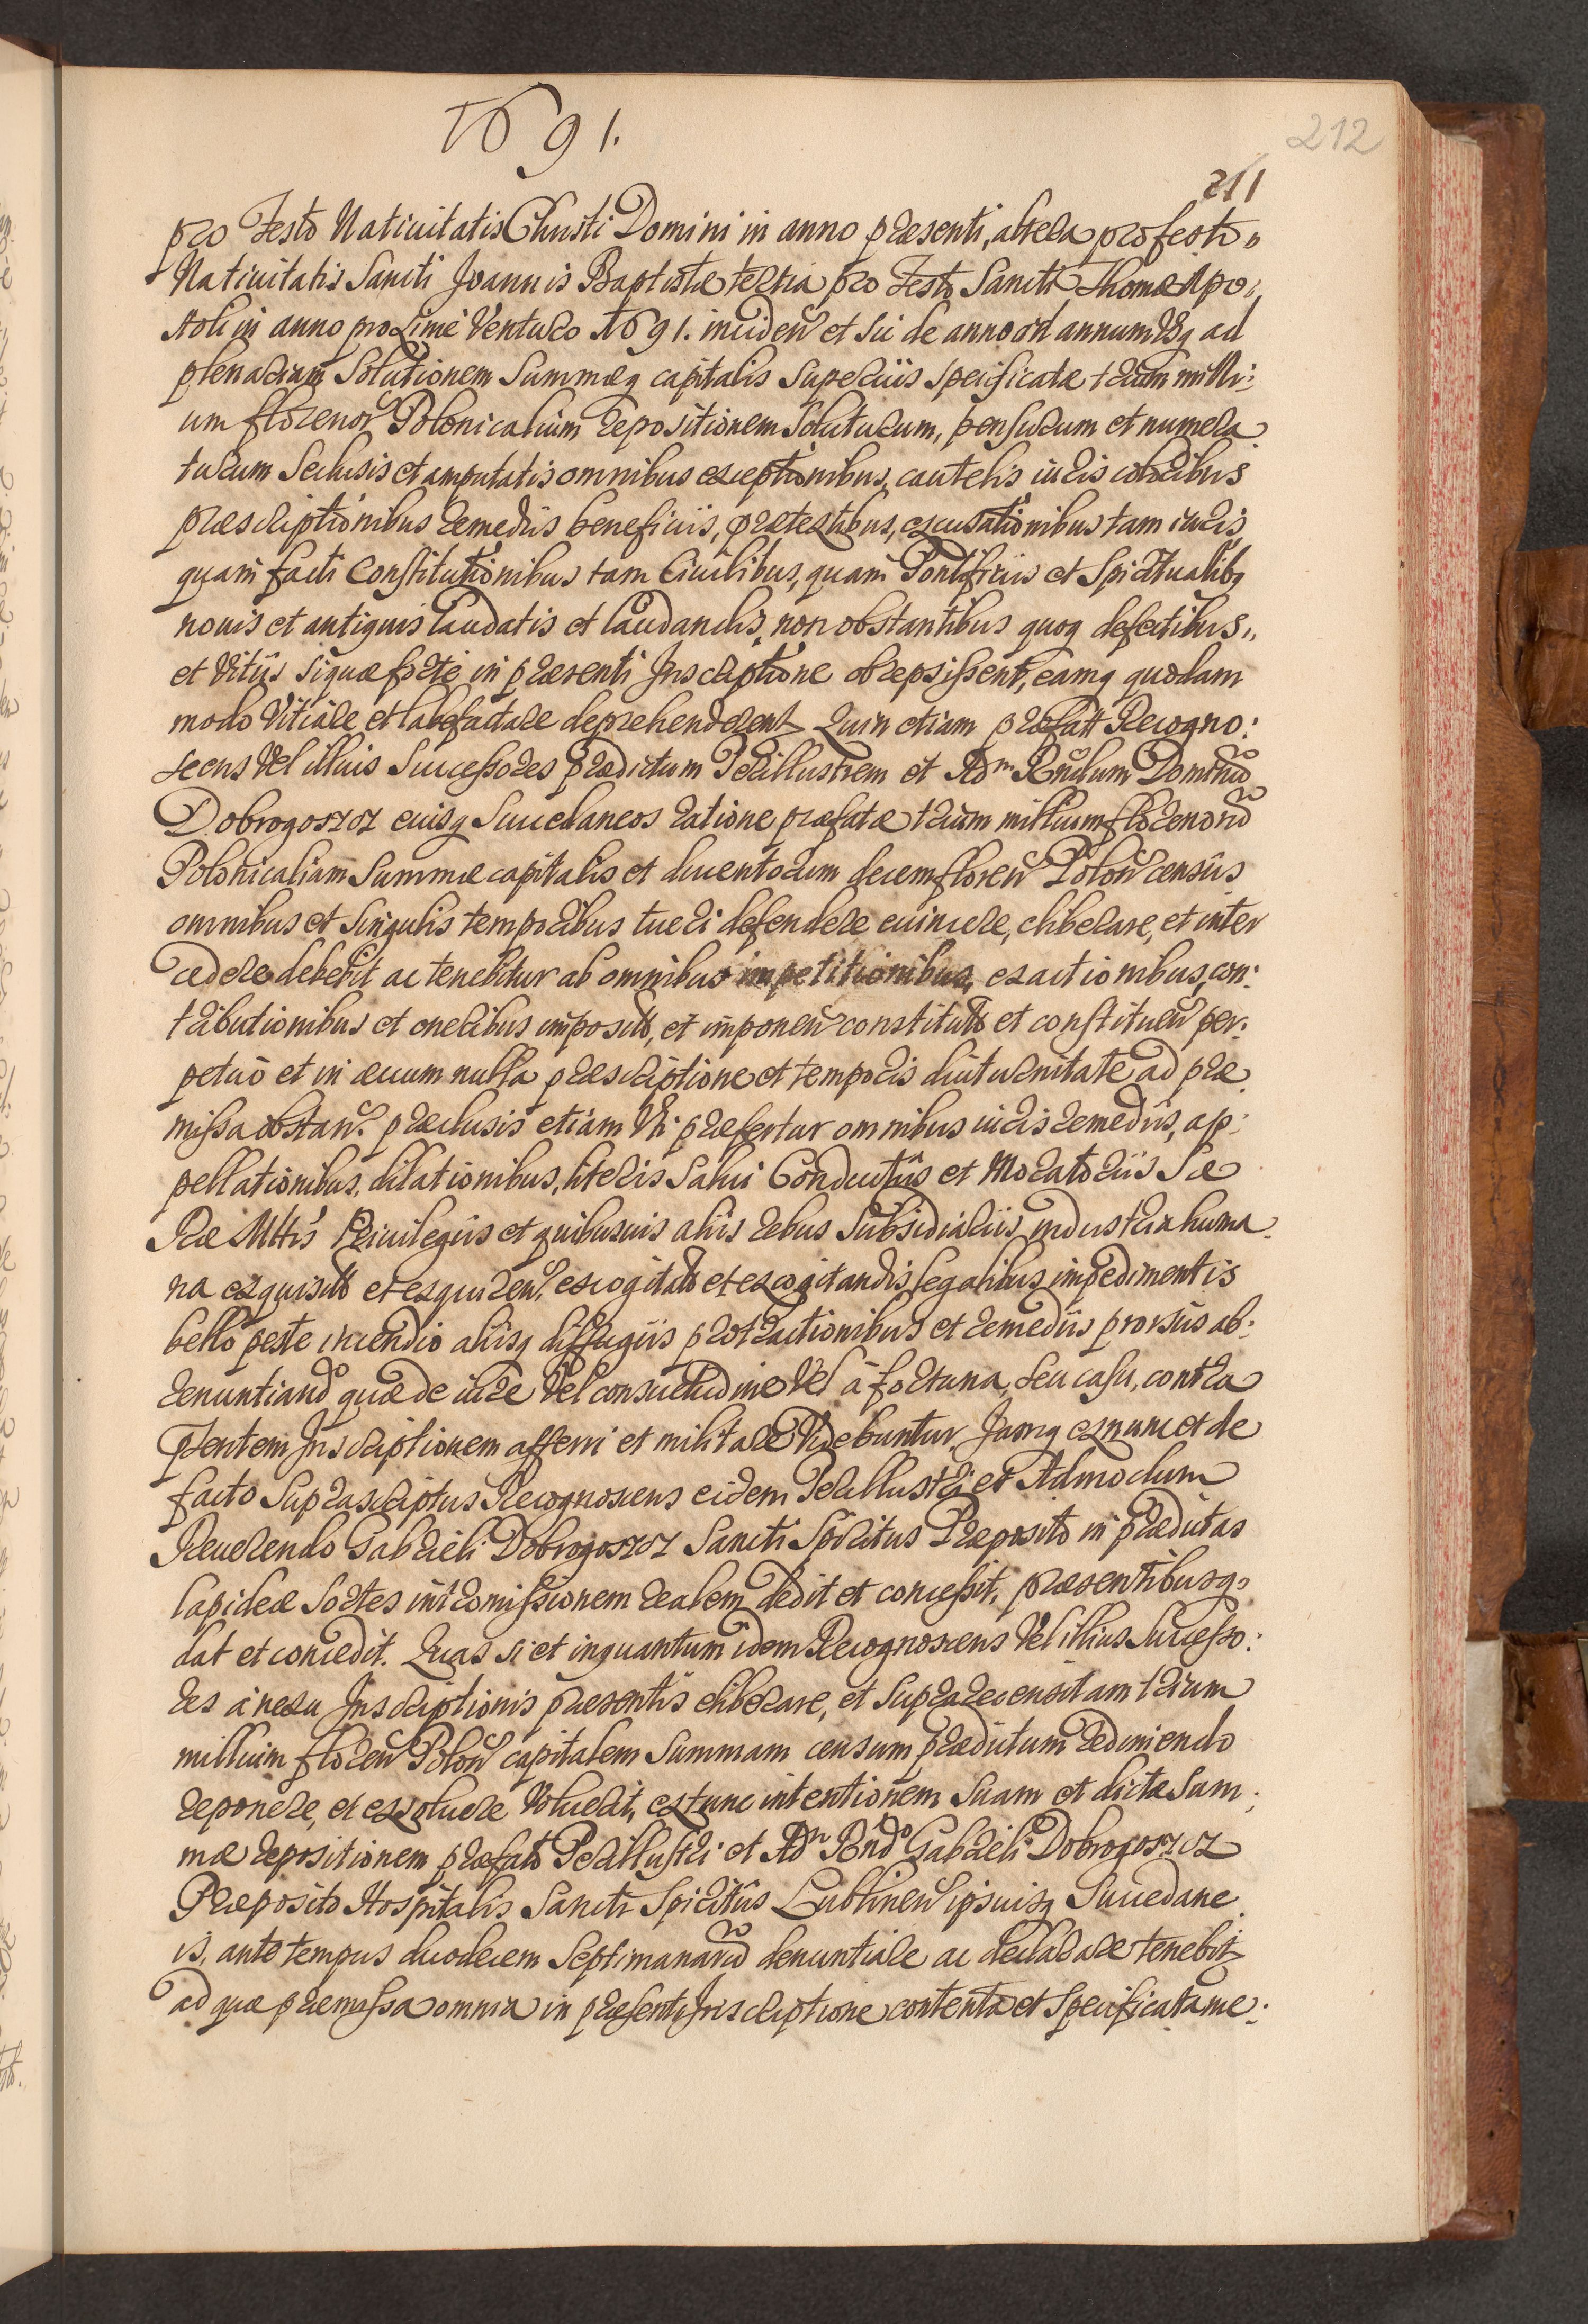 1691.
212
211
pro Festo Natiuitatis Christi Domini in anno præsenti, altera pro festo
Natiuitatis Sancti Joannis Baptistæ tertia pro Festo Sancti Thomæ Apo:
stoli in anno proxime Venturo 1691. inciden et sic de anno in annum Usq ad
plenariam Solutionem Summæq capitalis Superius specificatæ trium milli:
um florenor Polonicalium repositionem Soluturum, pensurum et numera
turum Seclusis et amputatis omnibus exceptionibus, cautelis iuris coloribus
præscriptionibus remedijs beneficiis, prætextibus, excusationibus tam iuris
quam facti Constitutionibus tam Ciuilibus, quam Pontificiis et Spiritualibq
nouis et antiquis laudatis et laudandis, non obstantibus quoq defectibus,
et Vitiis siquæ forte in præsenti Inscriptione obrepsissent, eamq quodam
modo Vitiare et labefactare deprehenderent. Quin etiam præfatt Recogno:
scens Vel illius Successores prædictum Perillustrem et Adm Rndum Dominu
Dobrogoszcz eiusq Succedaneos ratione præfatæ trium millium florenoru
Polonicalium Summæ capitalis et ducentorum decem floren Polon census
omnibus et singulis temporibus tueri defendere euincere, eliberare, et inter
cedere debebit ac tenebitur ab omnibus impetitionibus, exactionibus, con:
tributionibus et oneribus impositt, et imponen constitutt et constituen per:
petuò et in æuum nulla præscriptione et temporis diuturnitate ad præ
missa obstan. præclusis etiam Uti præfertur omnibus iuris remediis, ap:
pellationibus, dilationibus, literis Salui Conductus et Moratoriis Sæ
Ræ Mttis Priuilegiis et quibusuis aliis rebus Subsidiariis industria huma
na exquisitt et exquiren. excogitatt et excogitandis legalibus impedimentis
bello peste incendio aliisq diffugiis protractionibus et remediis prorsus ab:
renuntiando quæ de iure Vel consuetudine Vel à fortuna, seu casu, contra
pntem Inscriptionem afferri et militare Videbuntur. Jamq exnunc et de
facto Suprascriptus Recognoscens eidem Perillustri et Admodum
Reuerendo Gabrieli Dobrogoszcz Sancti Spiritus Præposito in prædictas
lapideæ Sortes intromissionem realem dedit et concessit, præsentibusq
dat et concedit. Quas si et inquantum idem Recognoscens Vel illius Successo:
res à nexu Inscriptionis præsentis eliberare, et Suprarecensitam trium
millium floren Polon capitalem Summam censum prædictum redimendo
reponere, et exoluere Voluerit, extunc intentionem Suam et dictæ Sum:
mæ repositionem præfato Perillustri et Adm Rndo Gabrieli Dobrogoszcz
Præposito Hospitalis Sancti Spiritus Lublinen ipsiusq Succedane
is, ante tempus duodecem Septimanaru denuntiare ac declarare tenebit
ad quæ præmissa omnia in præsenti Inscriptione contenta et specificata me: